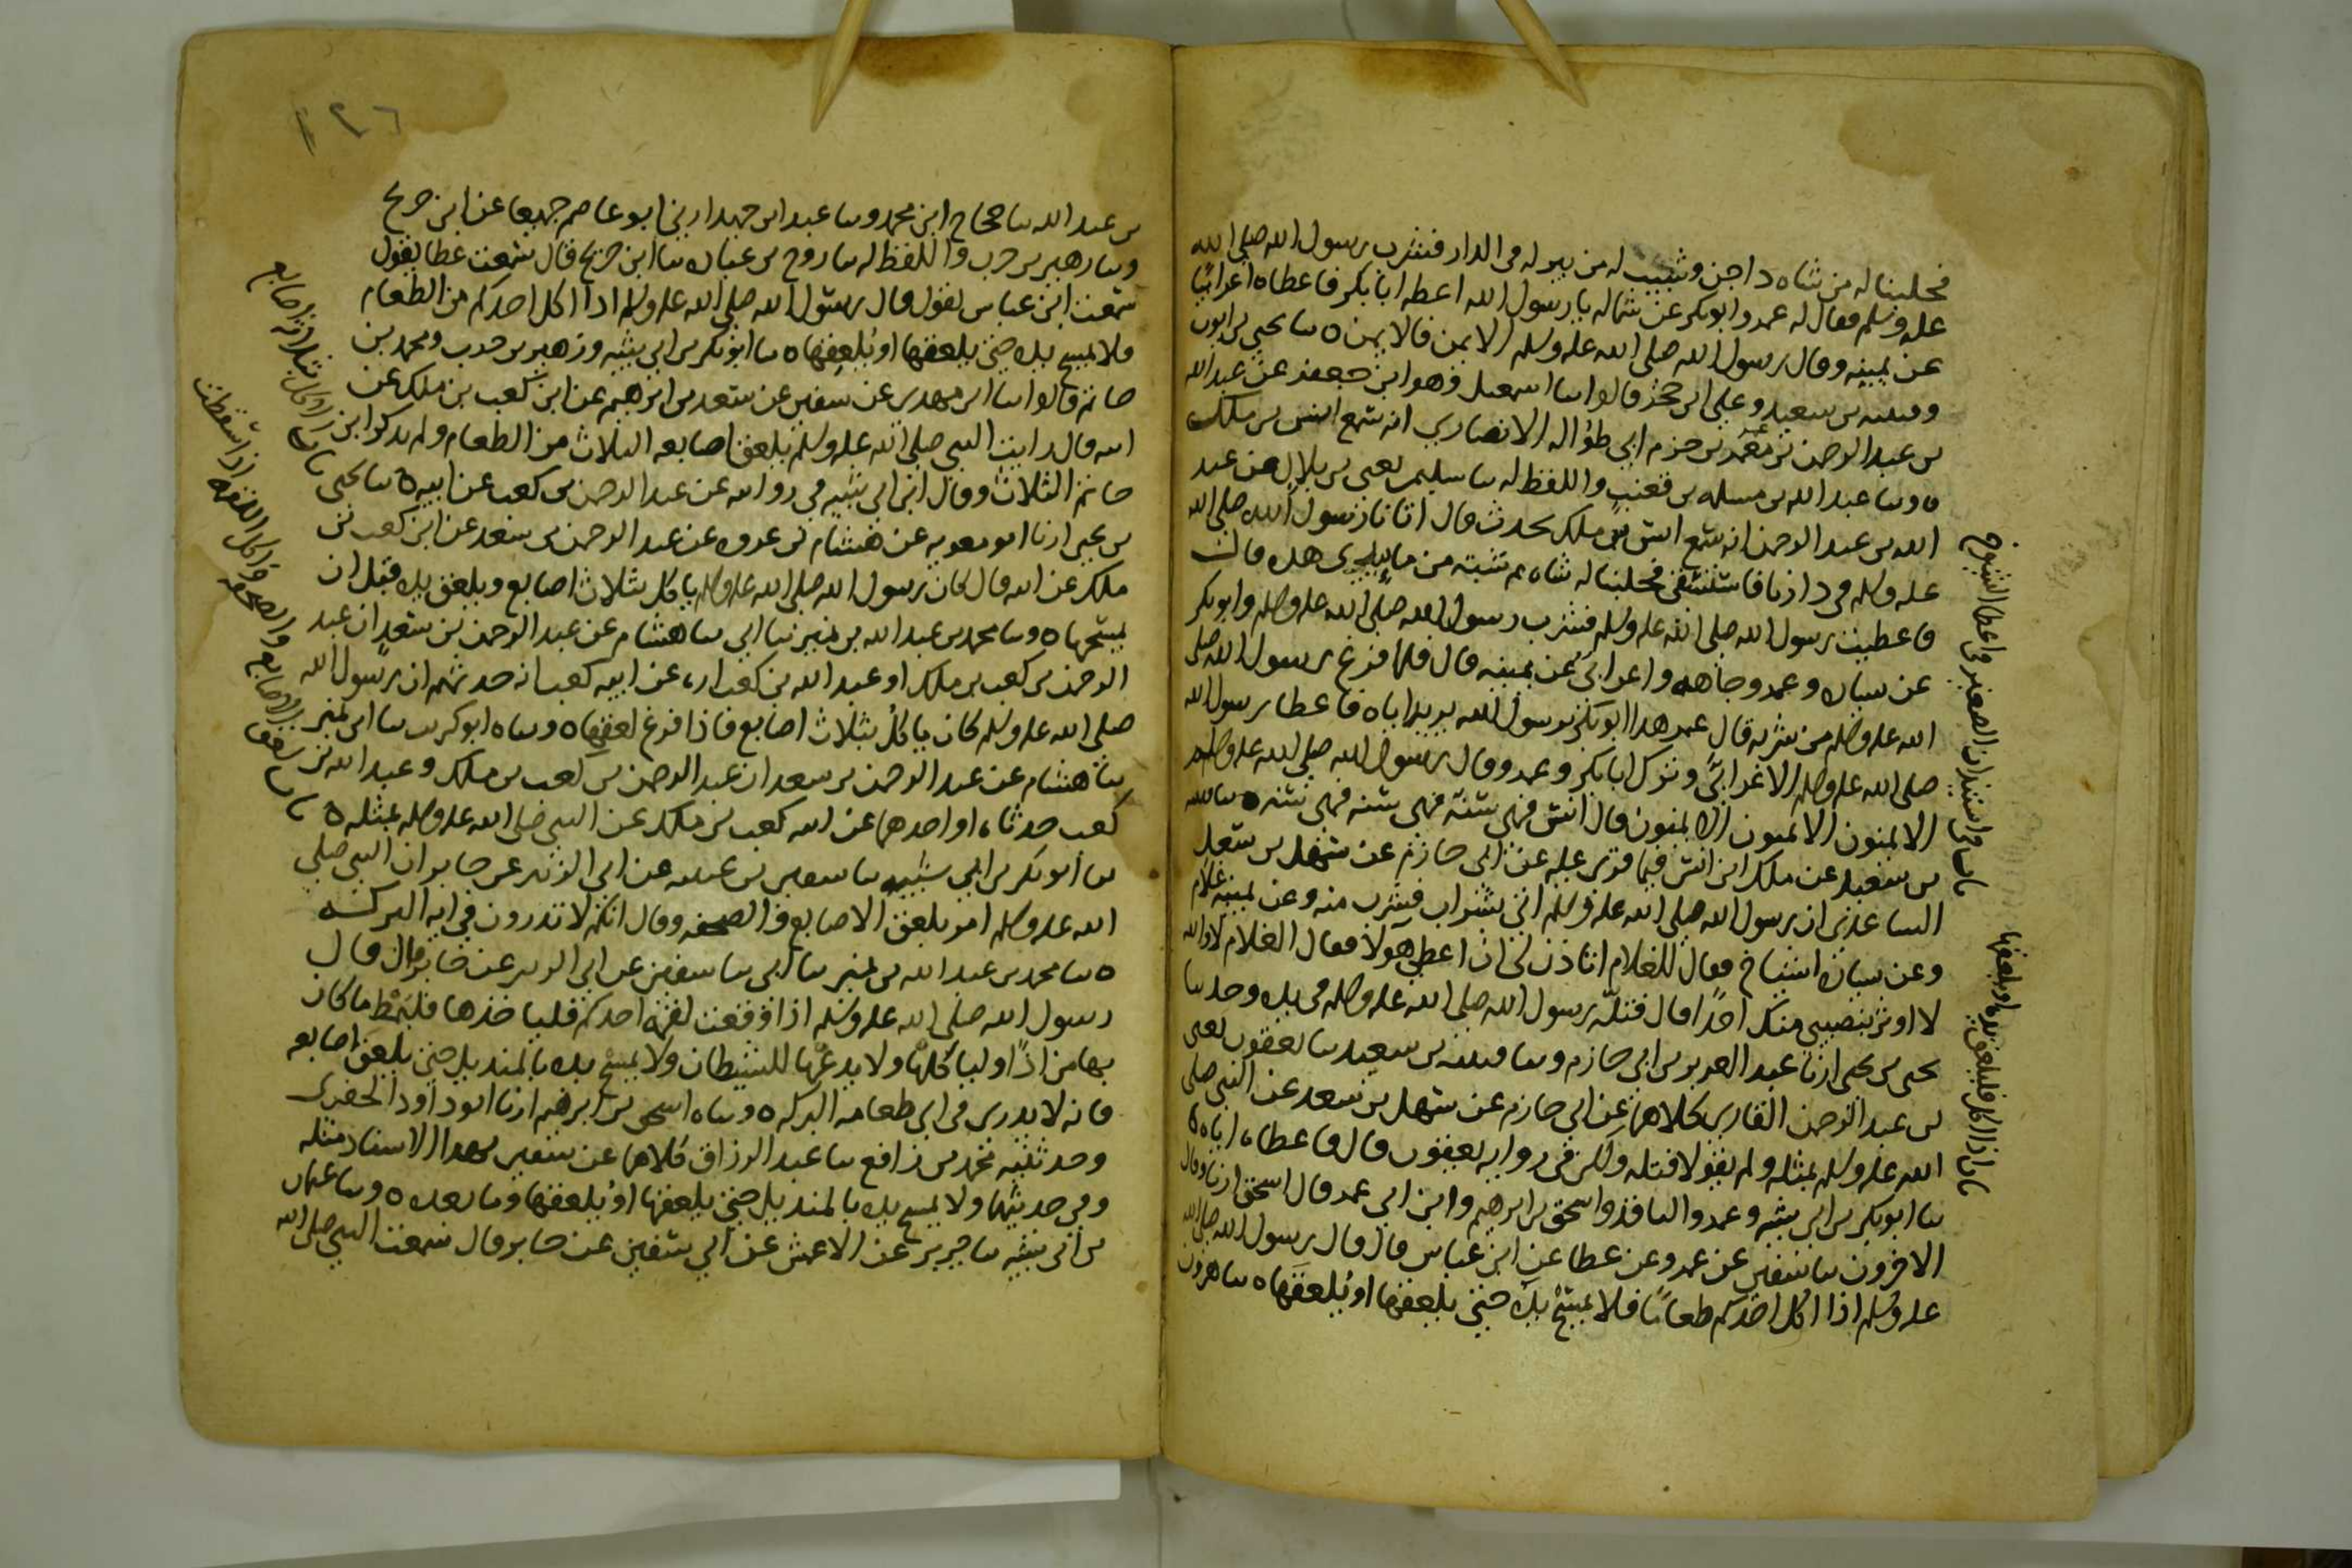 فحلبنا له من شاه داجن وشيب له من بير له في الدار فشرب رسول الله صلى الله
عليه وسلم فقال له عمر وابو بكر عن شماله يا رسول الله اعطه ابا بكر فاعطاه اعرابيًا
عن يمينه وقال رسول الله صلى الله عليه وسلم الايمن فالايمن ه سا يحيى بن ايوب
وقتيبه بن سعيد وعلي بن حجر قالوا سا اسمعيل وهو ابن جعفر عن عبد الله
بن عبد الرحمن بن معمر بن حزم ابي طواله الانصاري انه سمع انس بن ملك
ه وسا عبد الله بن مسلمه بن قعنب واللفظ له سا سليمن يعني بن بلال عن عبد
الله بن عبد الرحمن انه سمع انس بن ملك يحدث قال اتانا رسول الله صلى الله
عليه وسلم في دارنا فاستسقى فحلبنا له شاه ثم شبته من ما بيري هذه قال
فاعطيت رسول الله صلى الله عليه وسلم فشرب رسول الله صلى الله عليه وسلم وابو بكر
عن يساره وعمر وجاهه واعرابي عن يمينه قال فلما فرغ رسول الله صلى
الله عليه وسلم من شربه قال عمر هذا ابو بكر يرسول الله يريه اياه فاعطا رسول الله
صلى الله عليه وسلم الاعرابي وترك ابا بكر وعمر وقال رسول الله صلى الله عليه وسلم
الايمنون الايمنون الايمنون قال انس فهي سنة فهي سنه فهي سنه ه سا قتيبه
بن سعيد عن ملك ابن انس فيما قرئ عليه عن ابي حازم عن سهل بن سعد
الساعدي ان رسول الله صلى الله عليه وسلم اتي بشراب فشرب منه وعن يمينه غلام
وعن يساره اشياخ فقال للغلام اتاذن لي ان اعطي هولا فقال الغلام لا والله
لا اوثر بنصيبي منك احدًا قال فتلّه رسول الله صلى الله عليه وسلم في يده وحد سا
يحيى بن يحيى ارنا عبد العزيز بن ابي حازم وسا قتيبه بن سعيد سا يعقوب يعني
بن عبد الرحمن القاري كلاهما عن ابي حازم عن سهل بن سعد عن النبي صلى
الله عليه وسلم بمثله ولم يقولا فتله ولكن في روايه يعقوب قال فاعطاه اياه ه
سا ابو بكر بن ابي شيبه وعمرو الناقد واسحق بن ابرهيم وابن ابي عمر قال اسحق ارنا وقال
الاخرون سا سفين عن عمرو عن عطا عن ابن عباس قال قال رسول الله صلى الله
عليه وسلم اذا اكل احدكم طعامًا فلا يمسح يده حتى يلعقها او يُلعقها ه سا هرون
باب في استيذان الصغير في اعطا الشيوخ
باب اذا اكل فليلعق يده او يلعقها
١٢٦
بن عبد الله سا حجاج ابن محمد وسا عبد ابن حميد ارني ابو عاصم جميعا عن ابن جريح
وسا زهير بن حرب واللفظ له سا روح بن عباده سا ابن جريح قال سمعت عطا يقول
سمعت ابن عباس يقول قال رسول الله صلى الله عليه وسلم اذا اكل احدكم من الطعام
فلا يمسح يده حتى يلعقها او يُلعِقها ه سا ابو بكر بن ابي شيبه وزهير بن حرب ومحمد بن
حاتم قالوا سا ابن مهدي عن سفين عن سعد بن ابرهيم عن ابن كعب بن ملك عن
ابيه قال رايت النبي صلى الله عليه وسلم يلعق اصابعه الثلاث من الطعام ولم يذكر ابن
حاتم الثلاث وقال ابن ابي شيبه في روايته عن عبد الرحمن بن كعب عن ابيه ه سا يحيى
بن يحيى ارنا ابو معويه عن هشام بن عروه عن عبد الرحمن بن سعد عن ابن كعب بن
ملك عن ابيه قال كان رسول الله صلى الله عليه وسلم ياكل بثلاث اصابع ويلعق يده قبل ان
يمسحها ه وسا محمد بن عبد الله بن نمير سا ابي سا هشام عن عبد الرحمن بن سعد ان عبد
الرحمن بن كعب بن ملك او عبد الله بن كعب اره عن ابيه كعب انه حدثهم ان رسول الله
صلى الله عليه وسلم كان ياكل بثلاث اصابع فاذا فرغ لعقها ه وساه ابو كريب سا ابن نمير
سا هشام عن عبد الرحمن بن سعد ان عبد الرحمن بن كعب بن ملك وعبد الله بن
كعب حدثاه او احدهما عن ابيه كعب بن ملك عن النبي صلى الله عليه وسلم بمثله ه
سا ابو بكر بن ابي شيبه سا سفين بن عيينه عن ابي الزبير عن جابر ان النبي صلى
الله عليه وسلم امر بلعق الاصابع والصحفه وقال انكم لا تدرون في ايه البركة
ه سا محمد بن عبد الله بن نمير سا ابي سا سفين عن ابي الزبير عن جابر قال قال
رسول الله صلى الله عليه وسلم اذا وقعت لقمة احدكم فلياخذها فليمط ما كان
بها من اذًا ولياكلها ولا يدعها للشيطان ولا يمسح يده بالمنديل حتى يلعق اصابعه
فانه لا يدري في اي طعامه البركه ه وساه اسحق بن ابرهيم ارنا ابو داود الحفري
وحدثنيه محمد بن رافع سا عبد الرزاق كلاهما عن سفين بهذا الاسناد مثله
وفي حديثهما ولا يمسح يده بالمنديل حتى يلعقها او يُلعقها وما بعده ه وسا عثمان
بن ابي شيبه سا جرير عن الاعمش عن ابي سفين عن جابر قال سمعت النبي صلى الله
باب الاكل بثلاثه اصابع
باب لعق الاصابع والصحفه واكل اللقمه اذا سقطت